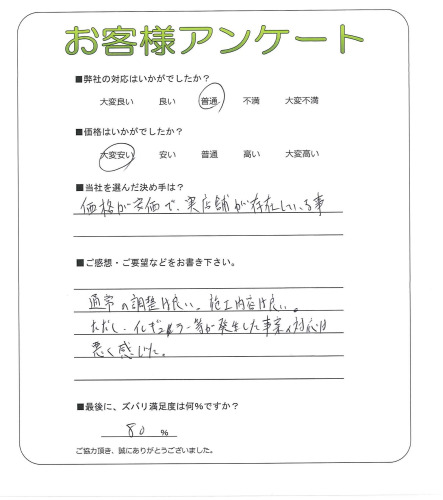 お客様アンケート
■弊社の対応はいかがでしたか？
大変良い 良い 普通 不満 大変不満
■価格はいかがでしたか？
大変安い 安い 普通 高い 大変高い
■当社を選んだ決め手は？
価格が安価で、実店舗が存在している事
■ご感想・ご要望などをお書き下さい。
通常の調整は良い。施工内容は良い。
ただし、イレギュラー等が発生した事案の対応は
悪く感じた。
■最後に、ズバリ満足度は何％ですか？
80 ％
ご協力頂き、誠にありがとうございました。